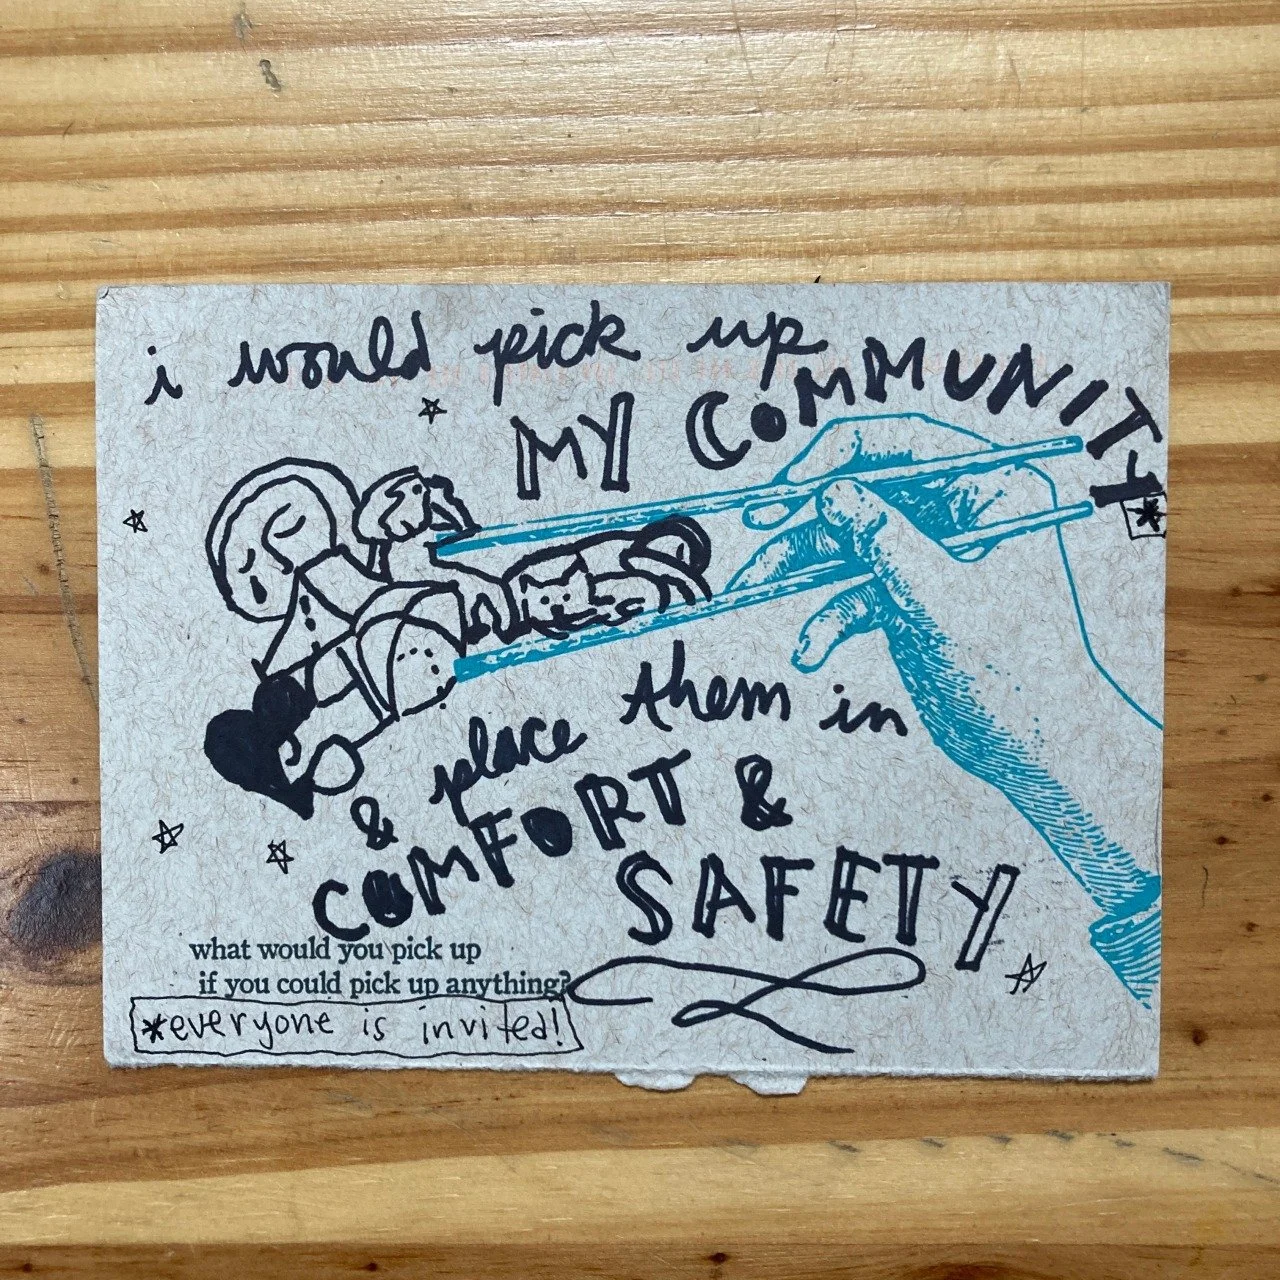 i would pick up
MY COMMUNITY*
& place them in
COMFORT &
SAFETY
what would you pick up
if you could pick up anything?
*everyone is invited!